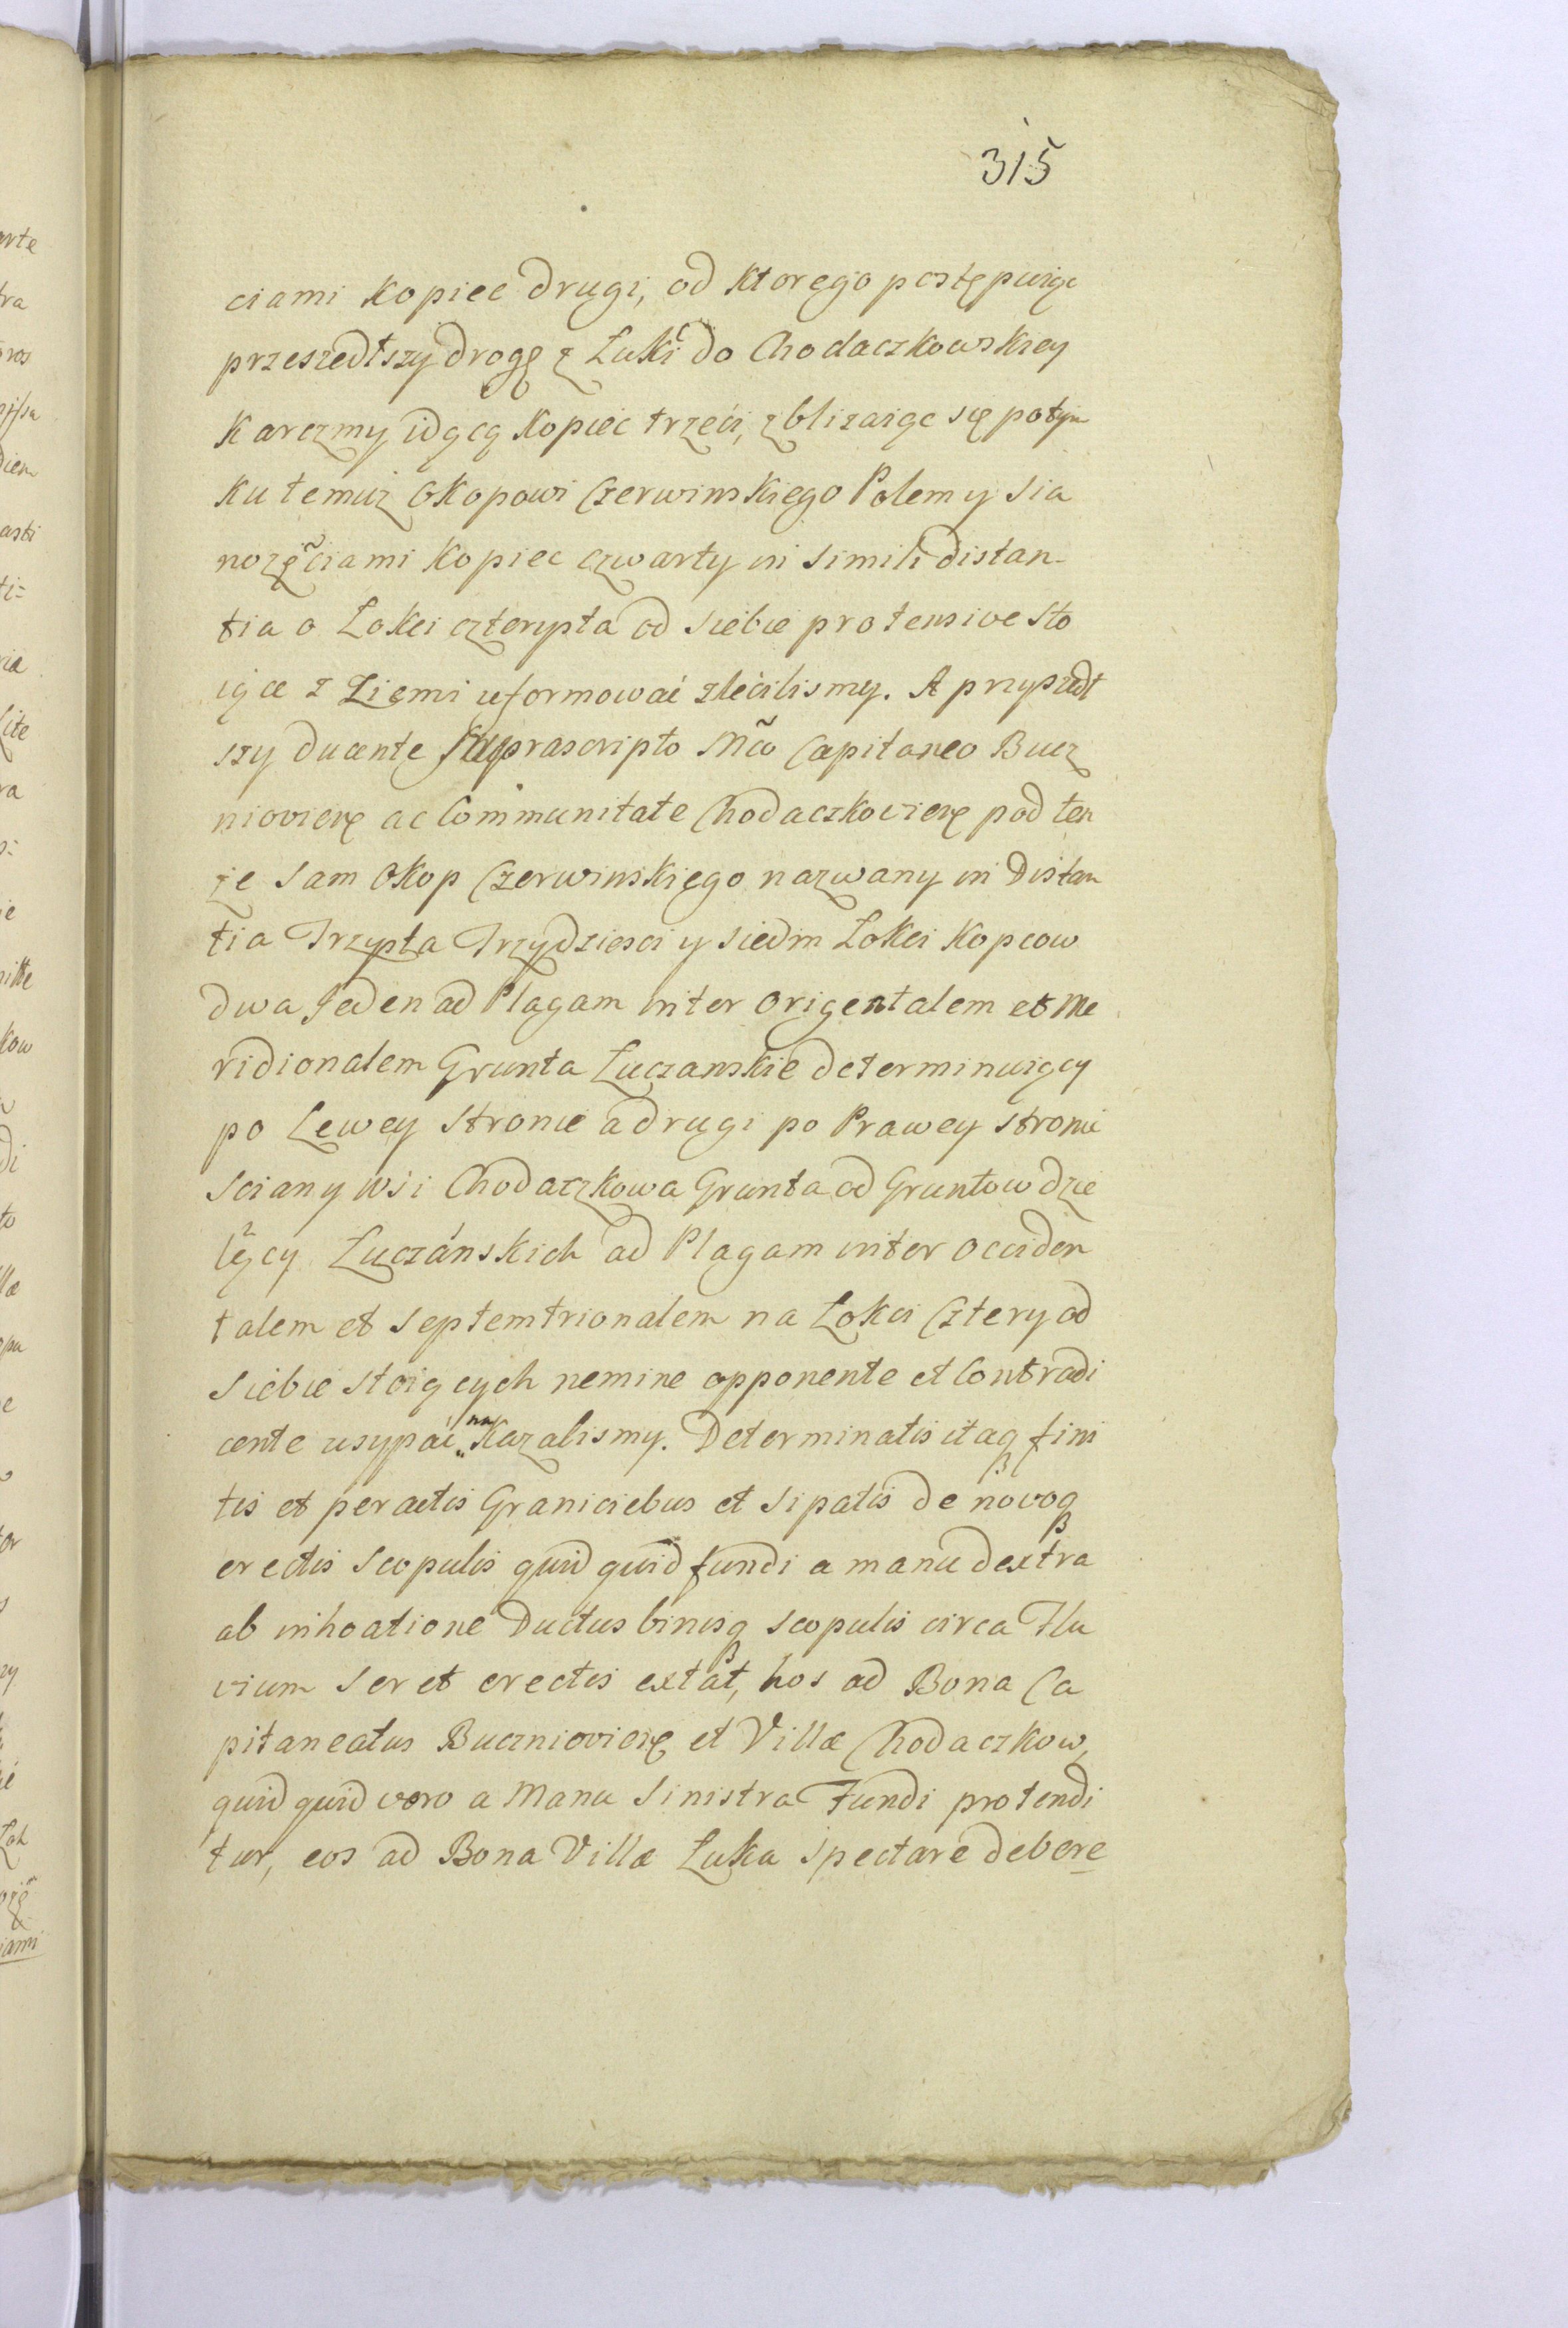 315
ciami Kopiec drugi, od Ktorego postępuiąc
przeszedłszy drogę z Łuki do Chodaczkowskiey
Karczmy idącą Kopiec trzeci, zbliżaiąc się potym
ku temuż Okopowi Czerwinskiego Polem y Sia
nożęciami Kopiec czwarty in simili distan-
tia o Łokci czterysta od siebie protensive sto
iące z Ziemi uformować zleciliśmy. A przyszedł
szy ducente supra scripto Mco Capitaneo Bucz
nioviens ac Communitate Chodaczkoviens pod ten
że sam Okop Czerwinskiego nazwany in Distan
tia Trzysta Trzydziesci y siedm Łokci Kopcow
dwa Jeden ad Plagam inter Origentalem et Me
ridionalem Grunta Łuczanskie determinuiący
po Lewey Stronie a drugi po Prawey stronie
sciany Wsi Chodaczkowa Grunta od Gruntow dzie
lący Łuczánskich ad Plagam inter Occiden
talem et Septemtrionalem na Łokci Cztery od
siebie stoiących nemine opponente et Contradi
cente usypać naKazalismy. Determinatis itaq fini
tis et peractis Graniciebus et sipatis de novoq
erectis scopulis quid quid fundi a manu dextra
ab inhoatione Ductus binisq scopulis circa Flu
vium Seret erectis extat, hos ad Bona Ca
pitaneatus Buczнioviens et Villæ Chodaczkow,
quid quid vero a Manu Sinistra Fundi protendi
tur, eos ad Bona Villæ Łuka spectare debere